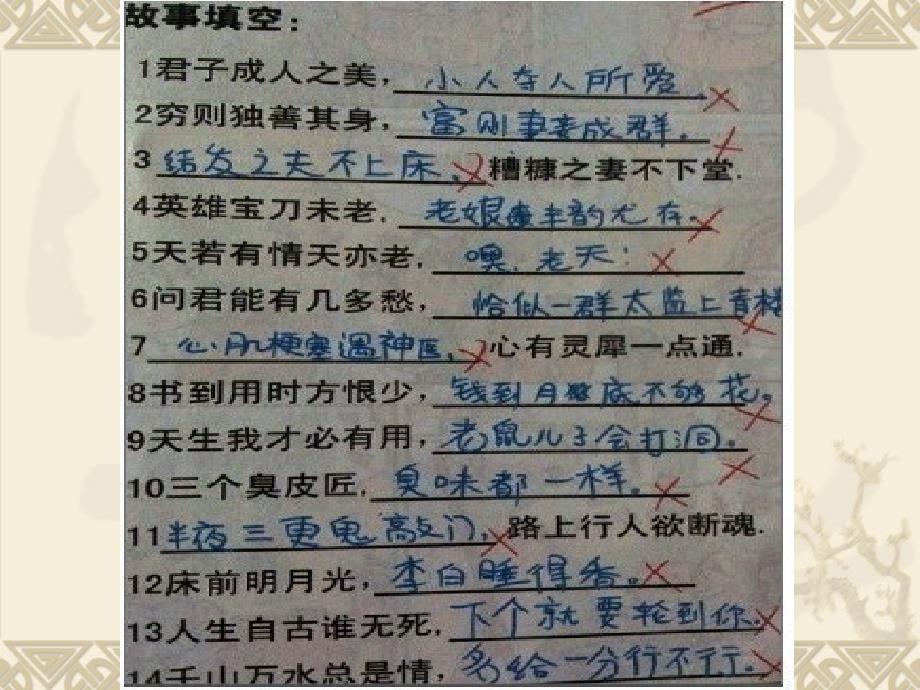 故事填空：
1君子成人之美，小人夺人所爱
2穷则独善其身，富则妻妾成群。
3结发之夫不上床，糟糠之妻不下堂.
4英雄宝刀未老，老娘丰韵尤存。
5天若有情天亦老，噢，老天！
6问君能有几多愁，恰似一群太监上青楼
7心肌梗塞遇神医，心有灵犀一点通.
8书到用时方恨少，钱到月底不够花。
9天生我才必有用，老鼠儿子会打洞。
10三个臭皮匠，臭味都一样。
11半夜三更鬼敲门，路上行人欲断魂.
12床前明月光，李白睡得香。
13人生自古谁无死，下个就要轮到你。
14千山万水总是情，多给一分行不行。